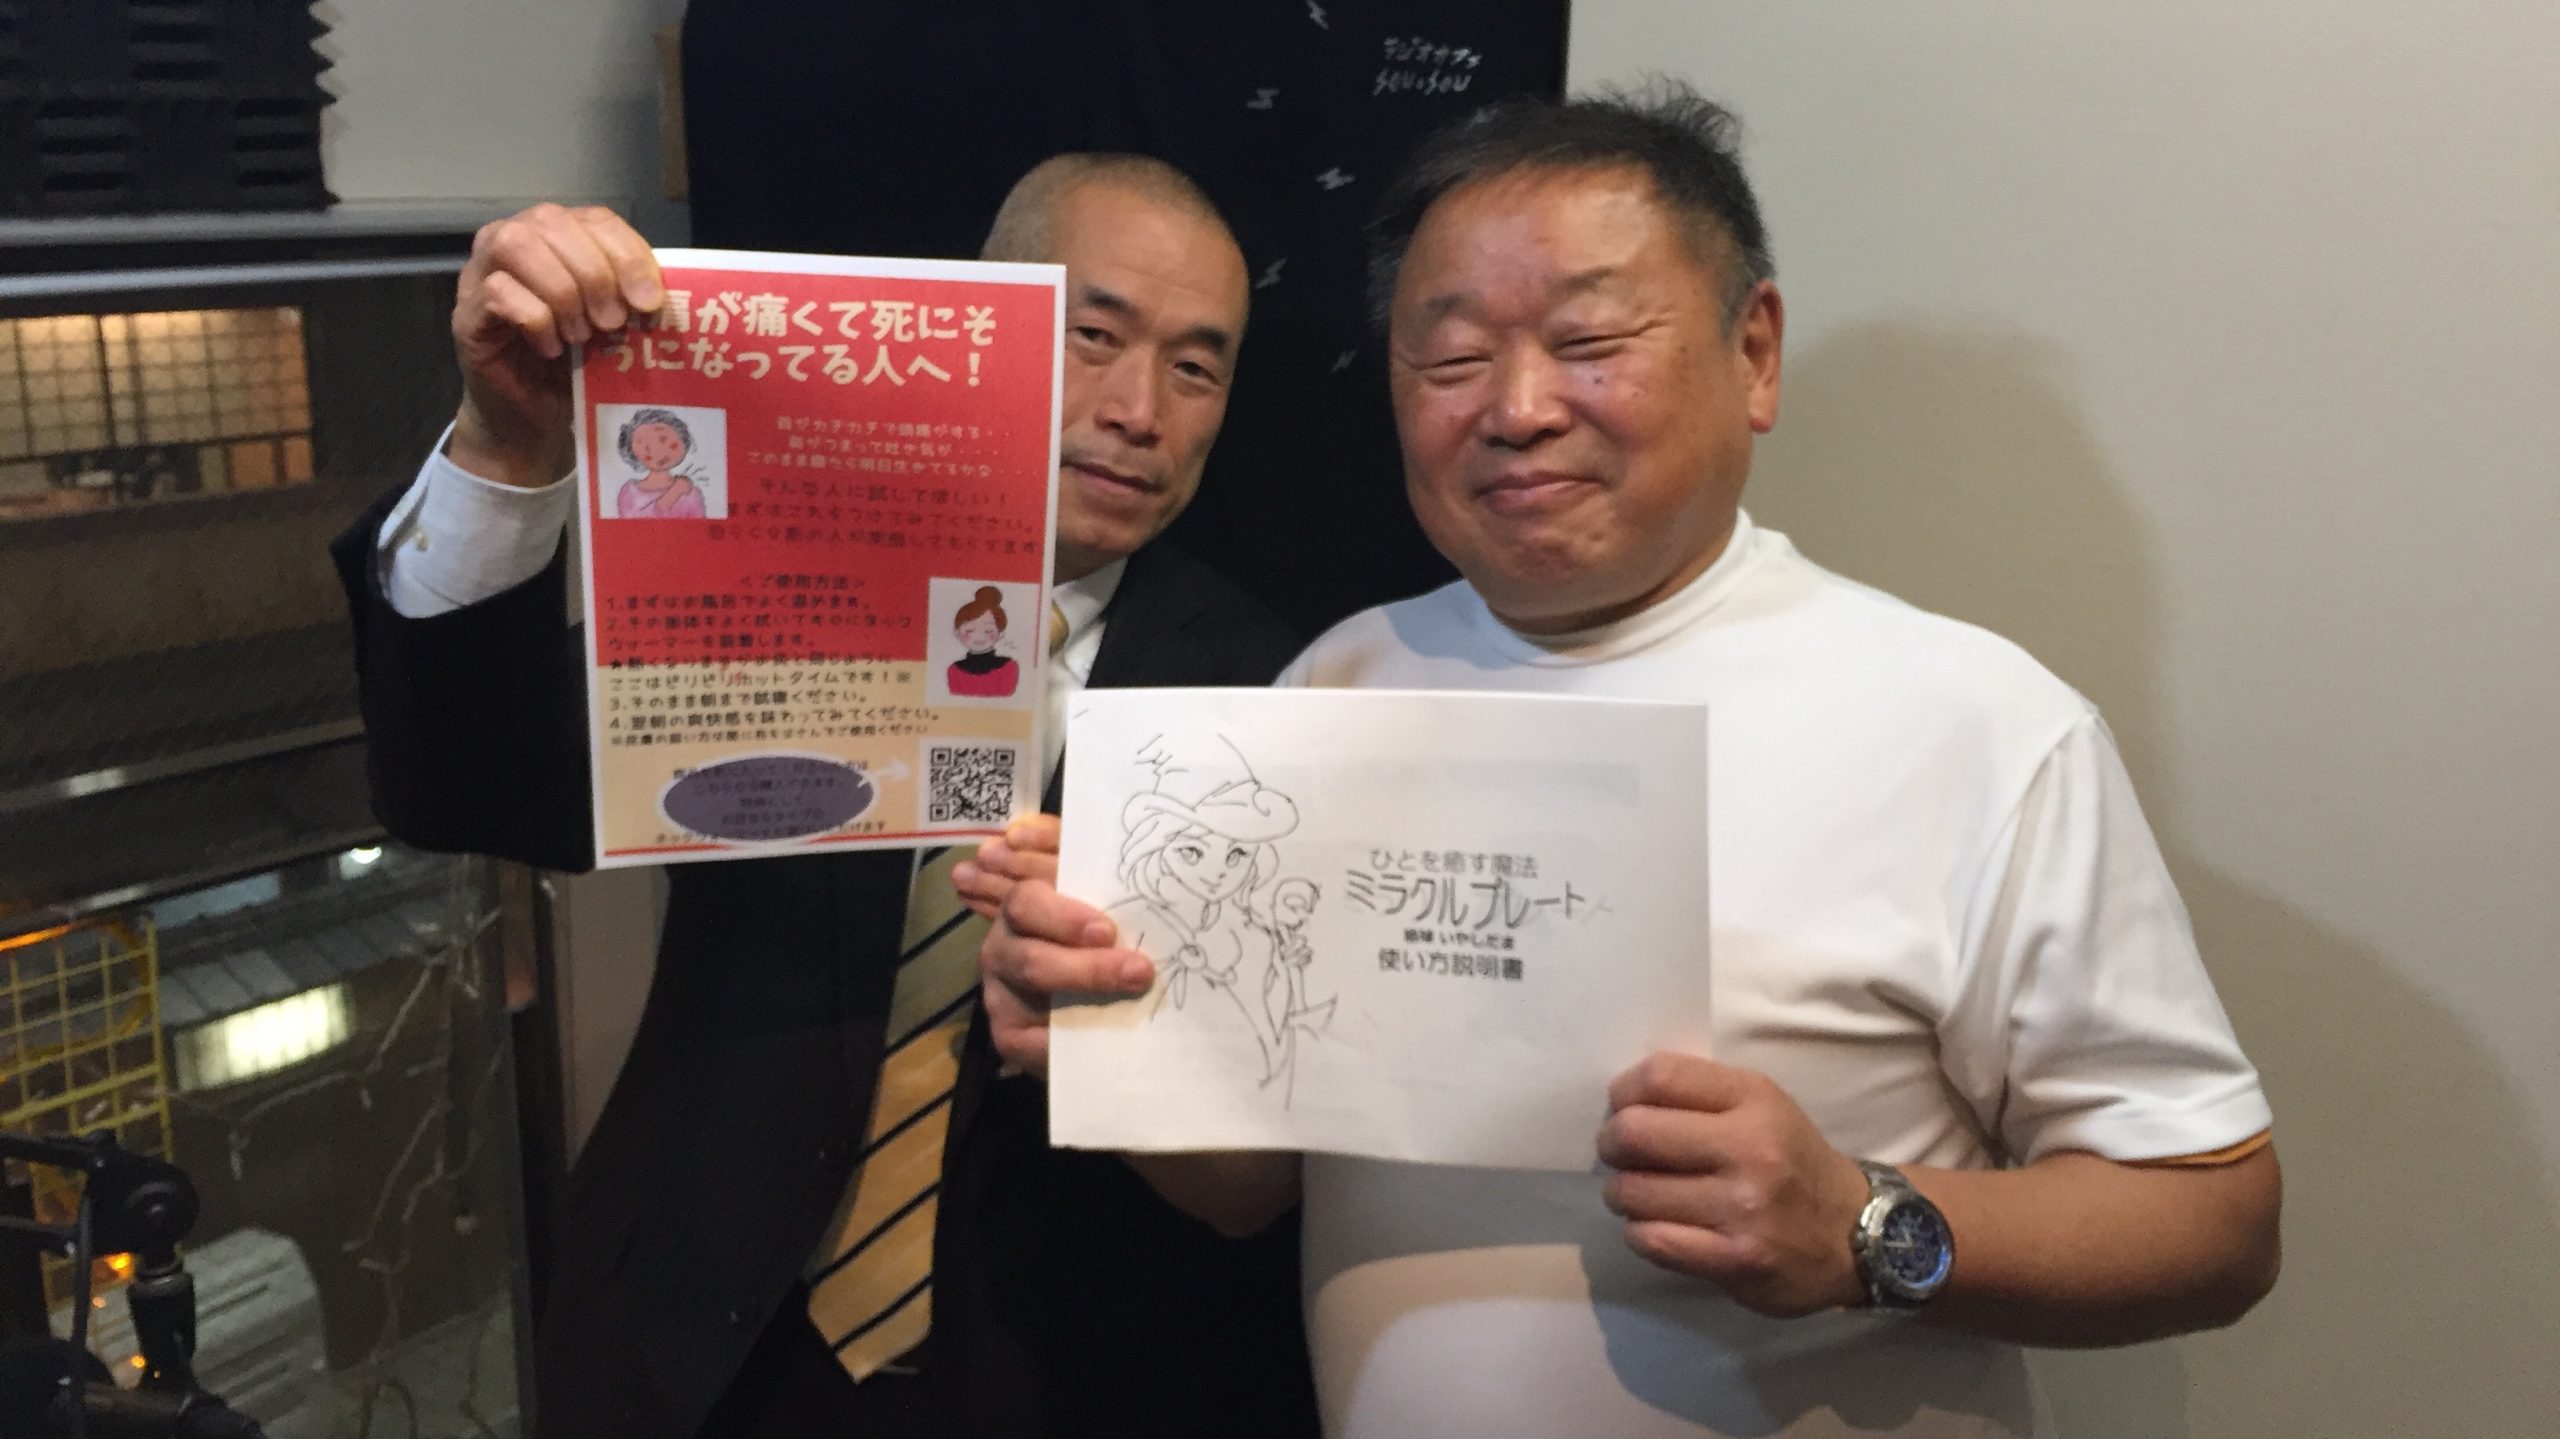 ラジオカフェ
SOU・SOU
肩が痛くて死にそ
うになってる人へ！
首がカチカチで頭痛がする・・
肩がつまって吐き気が・・・・
このまま寝たら明日生きてるかな・・・
そんな人に試して欲しい！
まずはこれをつけてみてください。
＜ご使用方法＞
1.まずはお風呂でよく温めます。
2.その後体をよく拭いてすぐにネック
ウォーマーを装着します。
★熱くなりますがお灸と同じように
ここはピリピリホットタイムです！※
3.そのまま朝まで試着ください。
4.翌朝の爽快感を味わってみてください。
※皮膚の弱い方は間に布をはさんでご使用ください
ひとを癒す魔法
ミラクルプレート
癒球 いやしだま
使い方説明書